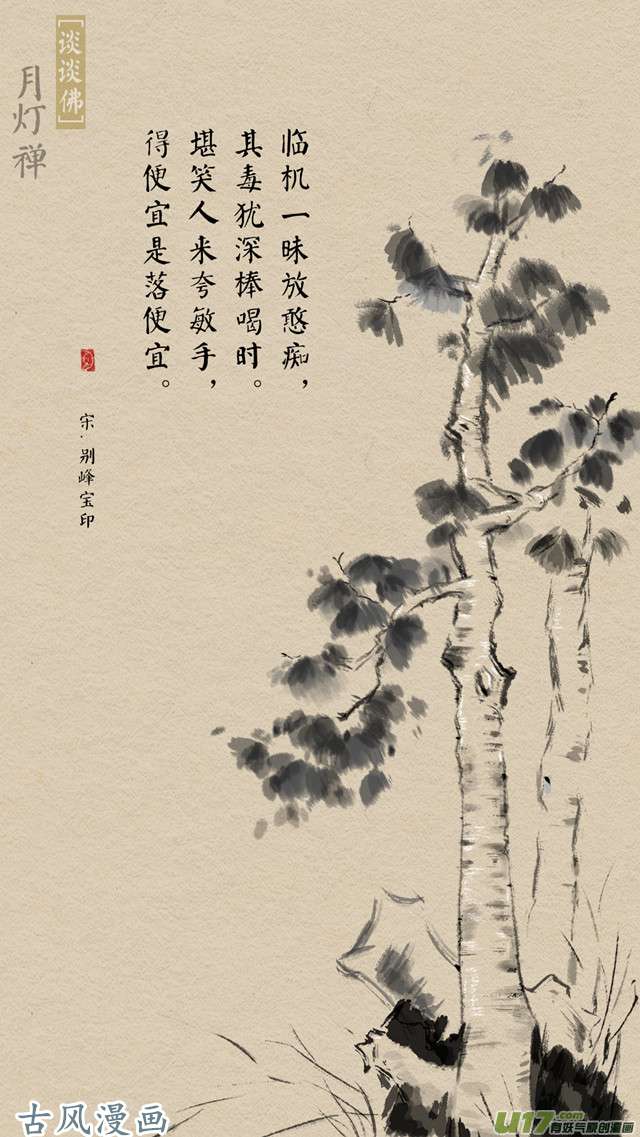 [谈谈佛]
月灯禅
临机一昧放憨痴，
其毒犹深棒喝时。
堪笑人来夸敏手，
得便宜是落便宜。
宋．别峰宝印
古风漫画
U17.com
有妖气原创漫画